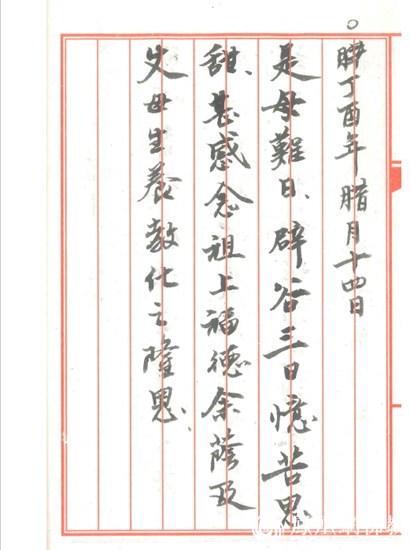 丁酉年 腊月十四日
是母難日、辟谷三日憶苦思
甜、甚感念祖上福德余蔭及
父母生养教化之隆恩、